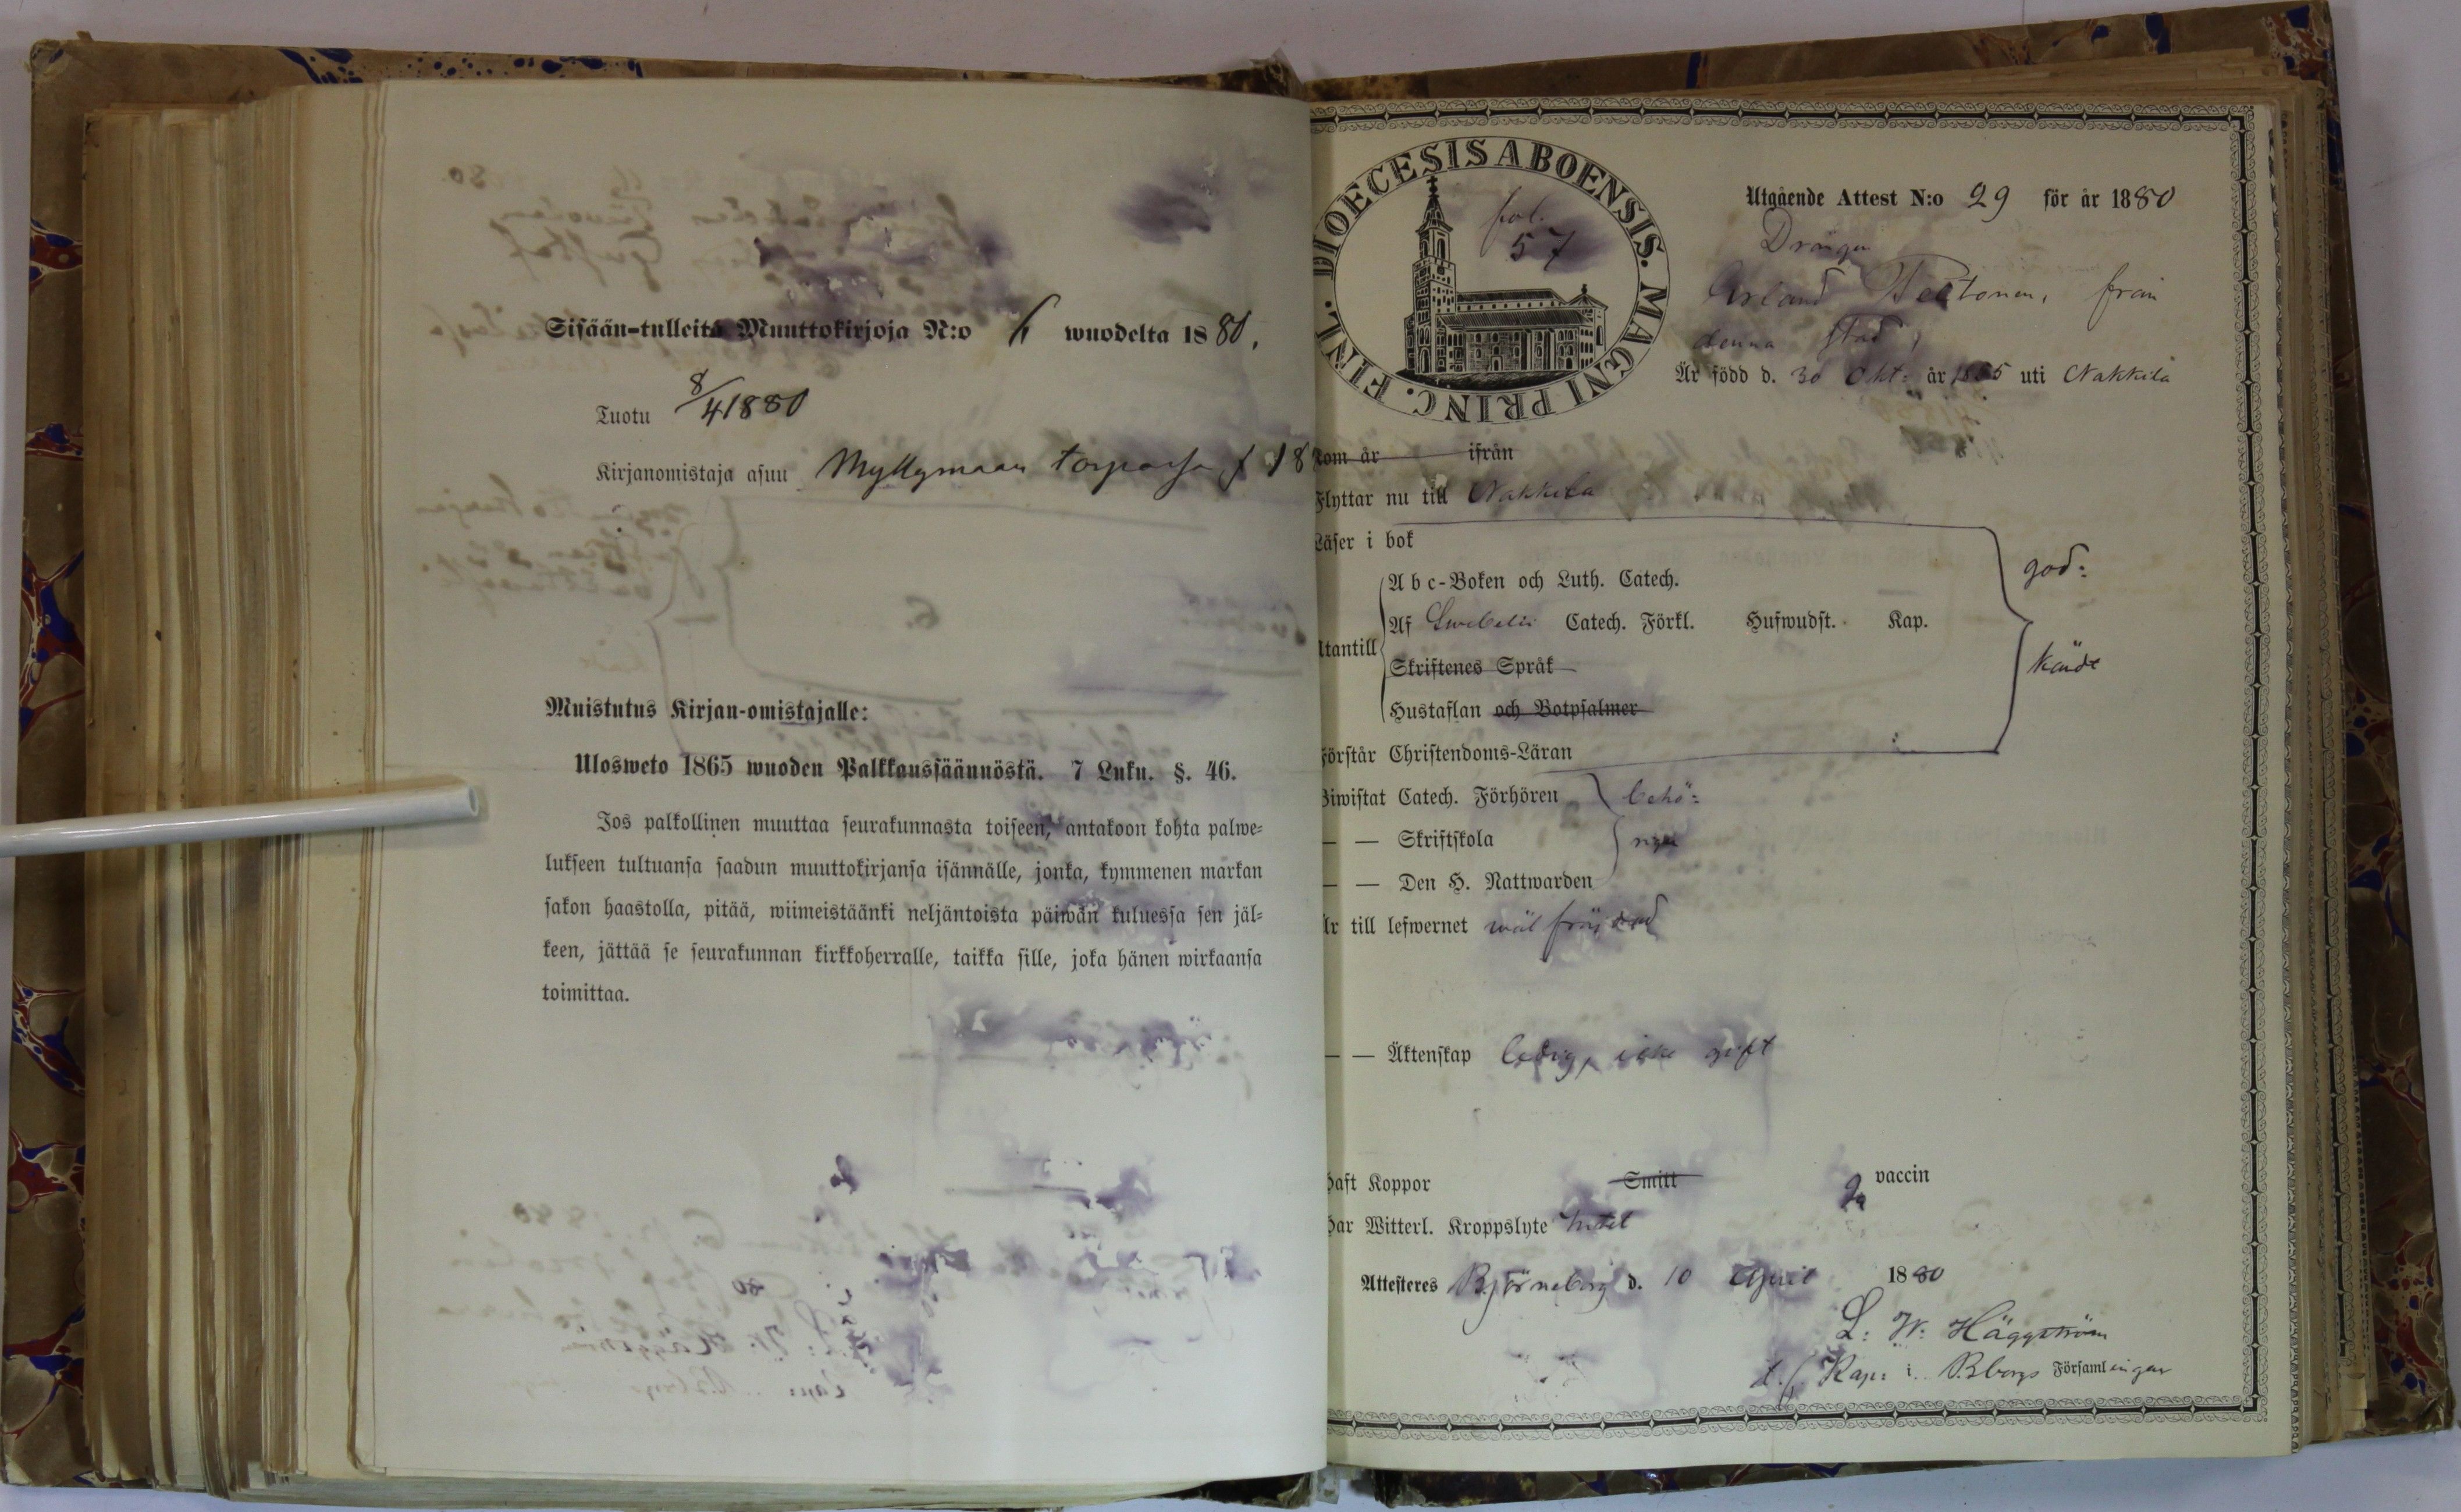 Sisään-tulleita Muuttokirjoja N:o 6 wuodelta 1880.
Tuotu 8/4 1880
Kirjanomistaja asuu Myllymaan torpassa
Muistutus Kirjan-omistajalle:
Ulosweto 1865 wuoden Palkkaussäännöstä. 7 Luku. §. 46.
Jos palkollinen muuttaa seurakunnasta toiseen, antakoon kohta palwe=
lukseen tultuansa saadun muuttokirjansa isännälle, jonka, kymmenen markan
sakon haastolla, pitää, wiimeistäänki neljäntoista päiwän kuluessa sen jäl=
keen, jättää se seurakunnan kirkkoherralle, taikka sille, joka hänen wirkaansa
toimittaa.
FINL. DIOECESIS ABOENSIS. MAGNI PRINC.
fol.
57
Utgående Attest N:o 29 för år 1880
Drängen
från
denna stad,
Är född d. 30 Okt: år uti Nakkila
kom år ifrån
Flyttar nu till Nakkila
Läser i bok
god:
A b c-Boken och Luth. Catech.
Af Swebelii Catech. Förkl. Hufwudst. Kap.
Utantill
Skriftenes Språk
kändt
Hustaflan och Botpsalmer
Förstår Christendoms-Läran
Biwistat Catech. Förhören behö=
— — Skriftskola rigen
— — Den H. Nattwarden
Är till lefwernet wäl fräjdad
— — Äktenskap ledig, icke gift
Haft Koppor Smitt vaccin
Har Witterl. Kroppslyte Intet
Attesteres Björneborg d. 10 April 1880
L: W: Häggström
t. f. Kap: i Bborgs Församlingar